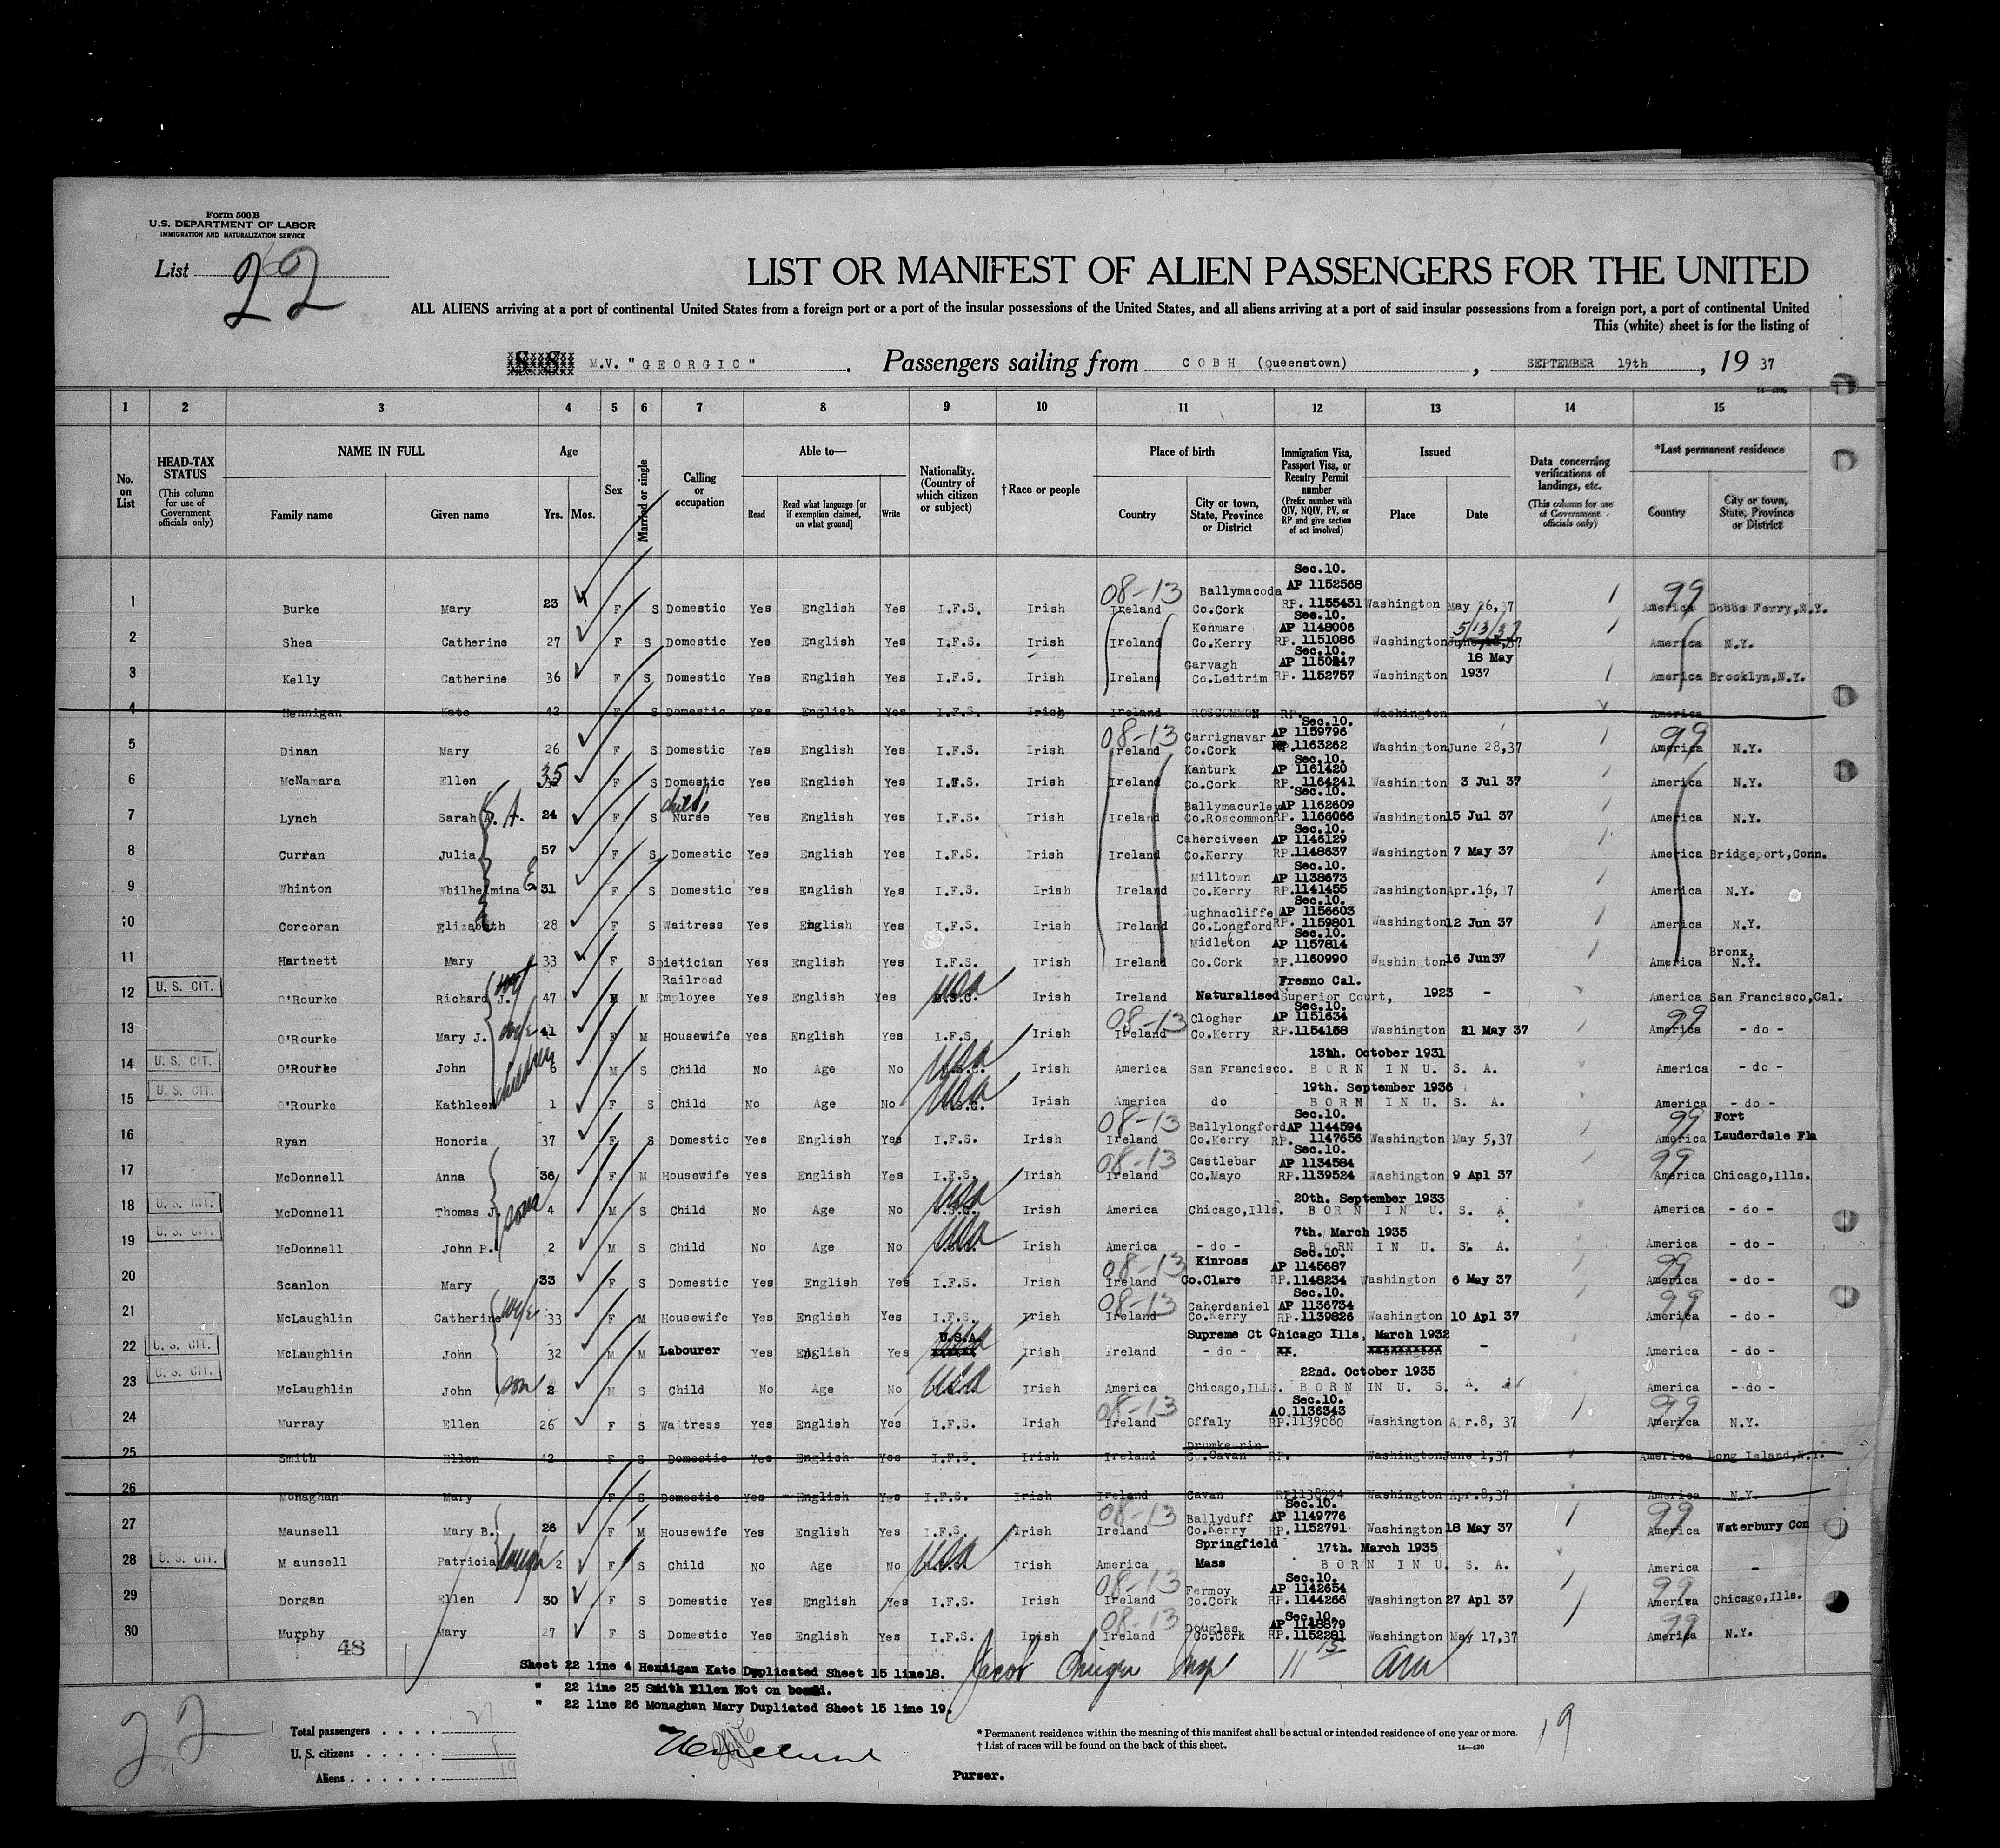 Form 500 B
U.S. DEPARTMENT OF LABOR
IMMIGRATION AND NATURALIZATION SERVICE
List 22
LIST OR MANIFEST OF ALIEN PASSENGERS FOR THE UNITED
ALL ALIENS arriving at a port of continental United States from a foreign port or a port of the insular possessions of the United States, and all aliens arriving at a port of said insular possessions from a foreign port, a port of continental United
This (white) sheet is for the listing of
M.V. "GEORGIC". Passengers sailing from COBH (Queenstown), SEPTEMBER 19th, 1937
1 2 3 4 5 6 7 8 9 10 11 12 13 14 15
No. on List
HEAD-TAX STATUS (This column for use of Government officials only)
NAME IN FULL Family name Given name
Age Yrs. Mos.
Sex
Married or single
Calling or occupation
Able to— Read Read what language [or if exemption claimed, on what ground] Write
Nationality. (Country of which citizen or subject)
†Race or people
Place of birth Country City or town, State, Province or District
Immigration Visa, Passport Visa, or Reentry Permit number (Prefix number with QIV, NQIV, PV, or RP and give section of act involved)
Issued Place Date
Data concerning verifications of landings, etc. (This column for use of Government officials only)
*Last permanent residence Country City or town, State, Province or District
1 Burke Mary 23 F S Domestic Yes English Yes I.F.S. Irish 08-13 Ireland Ballymacoda Co.Cork Sec.10. AP 1152568 RP. 1155431 Washington May 26,37 99 America Dobbs Ferry, N.Y.
2 Shea Catherine 27 F S Domestic Yes English Yes I.F.S. Irish Ireland Kenmare Co.Kerry Sec.10. AP 1148006 RP. 1151086 Washington 5/13/37 America N.Y.
3 Kelly Catherine 36 F S Domestic Yes English Yes I.F.S. Irish Ireland Garvagh Co.Leitrim Sec.10. AP 1150147 RP. 1152757 Washington 18 May 1937 America Brooklyn,N.Y.
4 Hennigan Kate 42 F S Domestic Yes English Yes I.F.S. Irish Ireland ROSCOMMON RP. Washington America
5 Dinan Mary 26 F S Domestic Yes English Yes I.F.S. Irish 08-13 Ireland Carrignavar Co.Cork Sec.10. AP 1159796 RP. 1163262 Washington June 28,37 99 America N.Y.
6 McNamara Ellen 35 F S Domestic Yes English Yes I.F.S. Irish Ireland Kanturk Co.Cork Sec.10. AP 1161420 RP. 1164241 Washington 3 Jul 37 America N.Y.
7 Lynch Sarah A. 24 F S child's Nurse Yes English Yes I.F.S. Irish Ireland Ballymacurley Co.Roscommon Sec.10. AP 1162609 RP. 1166066 Washington 15 Jul 37 America N.Y.
8 Curran Julia 57 F S Domestic Yes English Yes I.F.S. Irish Ireland Caherciveen Co.Kerry Sec.10. AP 1146129 RP. 1148637 Washington 7 May 37 America Bridgeport,Conn.
9 Whinton Whilhelmina E 31 F S Domestic Yes English Yes I.F.S. Irish Ireland Milltown Co.Kerry Sec.10. AP 1138673 RP. 1141455 Washington Apr.16, 37 America N.Y.
10 Corcoran Elizabeth 28 F S Waitress Yes English Yes I.F.S. Irish Ireland Aughnacliffe Co.Longford Sec.10. AP 1156603 RP. 1159801 Washington 12 Jun 37 America N.Y.
11 Hartnett Mary 33 F S Dietician Yes English Yes I.F.S. Irish Ireland Midleton Co.Cork Sec.10. AP 1157814 RP. 1160990 Washington 16 Jun 37 America Bronx, N.Y.
12 U. S. CIT. O'Rourke Richard J. 47 M M Railroad Employee Yes English Yes USA Irish Ireland Naturalised Fresno Cal. Superior Court, 1923 - America San Francisco,Cal.
13 O'Rourke Mary J. wife 41 F M Housewife Yes English Yes I.F.S. Irish 08-13 Ireland Clogher Co.Kerry Sec.10. AP 1151634 RP. 1154158 Washington 21 May 37 99 America - do -
14 U. S. CIT. O'Rourke John children 6 M S Child No Age No USA Irish America San Francisco. 13th. October 1931 BORN IN U. S. A. America - do -
15 U. S. CIT. O'Rourke Kathleen 1 F S Child No Age No USA Irish America do 19th. September 1936 BORN IN U. S. A. America - do -
16 Ryan Honoria 37 F S Domestic Yes English Yes I.F.S. Irish 08-13 Ireland Ballylongford Co.Kerry Sec.10. AP 1144594 RP. 1147656 Washington May 5,37 99 America Fort Lauderdale Fla
17 McDonnell Anna 36 F M Housewife Yes English Yes I.F.S. Irish 08-13 Ireland Castlebar Co.Mayo Sec.10. AP 1134584 RP. 1139524 Washington 9 Apl 37 99 America Chicago,Ills.
18 U. S. CIT. McDonnell Thomas J. sons 4 M S Child No Age No USA Irish America Chicago,Ills. 20th. September 1933 BORN IN U. S. A. America - do -
19 U. S. CIT. McDonnell John P. 2 M S Child No Age No USA Irish America - do - 7th. March 1935 BORN IN U. S. A. America - do -
20 Scanlon Mary 33 F S Domestic Yes English Yes I.F.S. Irish 08-13 Ireland Kinross Co.Clare Sec.10. AP 1145687 RP. 1148234 Washington 6 May 37 99 America - do -
21 McLaughlin Catherine wife 33 F M Housewife Yes English Yes I.F.S. Irish 08-13 Ireland Caherdaniel Co.Kerry Sec.10. AP 1136734 RP. 1139826 Washington 10 Apl 37 99 America - do -
22 U. S. CIT. McLaughlin John 32 M M Labourer Yes English Yes U.S.A. Irish Ireland - do - Supreme Ct Chicago Ills, March 1932 - America - do -
23 U. S. CIT. McLaughlin John son 2 M S Child No Age No USA Irish America Chicago,ILLS. 22nd. October 1935 BORN IN U. S. A. America - do -
24 Murray Ellen 26 F S Waitress Yes English Yes I.F.S. Irish 08-13 Ireland Offaly Sec.10. AO 1136343 RP. 1139080 Washington Apr.8, 37 99 America N.Y.
25 Smith Ellen 42 F S Domestic Yes English Yes I.F.S. Irish Ireland Drumkeerin Co.Cavan RP. Washington June 1,37 America Long Island,N.Y.
26 Monaghan Mary F S Domestic Yes English Yes I.F.S. Irish Ireland Cavan RP 1138994 Washington Apr.8,37 America N.Y.
27 Maunsell Mary B. 26 F M Housewife Yes English Yes I.F.S. Irish 08-13 Ireland Ballyduff Co.Kerry Sec.10. AP 1149776 RP. 1152791 Washington 18 May 37 99 America Waterbury Con
28 U. S. CIT. Maunsell Patricia 2 F S Child No Age No USA Irish America Springfield Mass 17th. March 1935 BORN IN U. S. A. America -
29 Dorgan Ellen 30 F S Domestic Yes English Yes I.F.S. Irish 08-13 Ireland Fermoy Co.Cork Sec.10. AP 1142654 RP. 1144266 Washington 27 Apl 37 99 America Chicago,Ills.
30 Murphy Mary 27 F S Domestic Yes English Yes I.F.S. Irish 08-13 Ireland Douglas Co.Cork Sec.10. AP 1148879 RP. 1152281 Washington May 17,37 99 America N.Y.
48
Sheet 22 line 4 Hennigan Kate Duplicated Sheet 15 line 18.
" 22 line 25 Smith Ellen Not on board.
" 22 line 26 Monaghan Mary Dupliated Sheet 15 line 19.
Jacob Insp 11 15 am
22
Total passengers . . . . 27
U. S. citizens . . . . . 8
Aliens . . . . . . 19
* Permanent residence within the meaning of this manifest shall be actual or intended residence of one year or more.
† List of races will be found on the back of this sheet.
14—420
19
Purser.